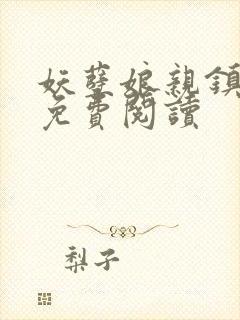 妖孽娘親鎮
免費閱讀
梨子